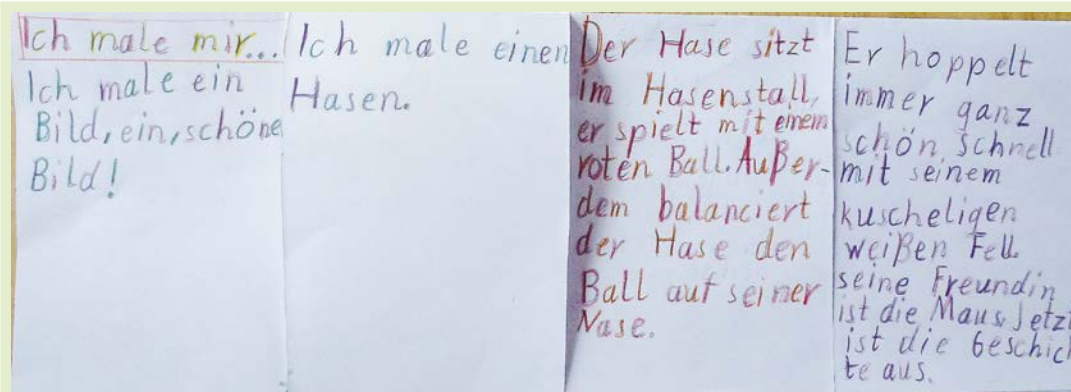 Ich male mir...
Ich male ein
Bild, ein, schöne
Bild!
Ich male einen
Hasen.
Der Hase sitzt
im Hasenstall,
er spielt mit einem
roten Ball. Außer-
dem balanciert
der Hase den
Ball auf seiner
Nase.
Er hoppelt
immer ganz
schön, schnell
mit seinem
kuscheligen
weißen Fell.
seine Freundin
ist die Maus. Jetzt
ist die Geschich
te aus.